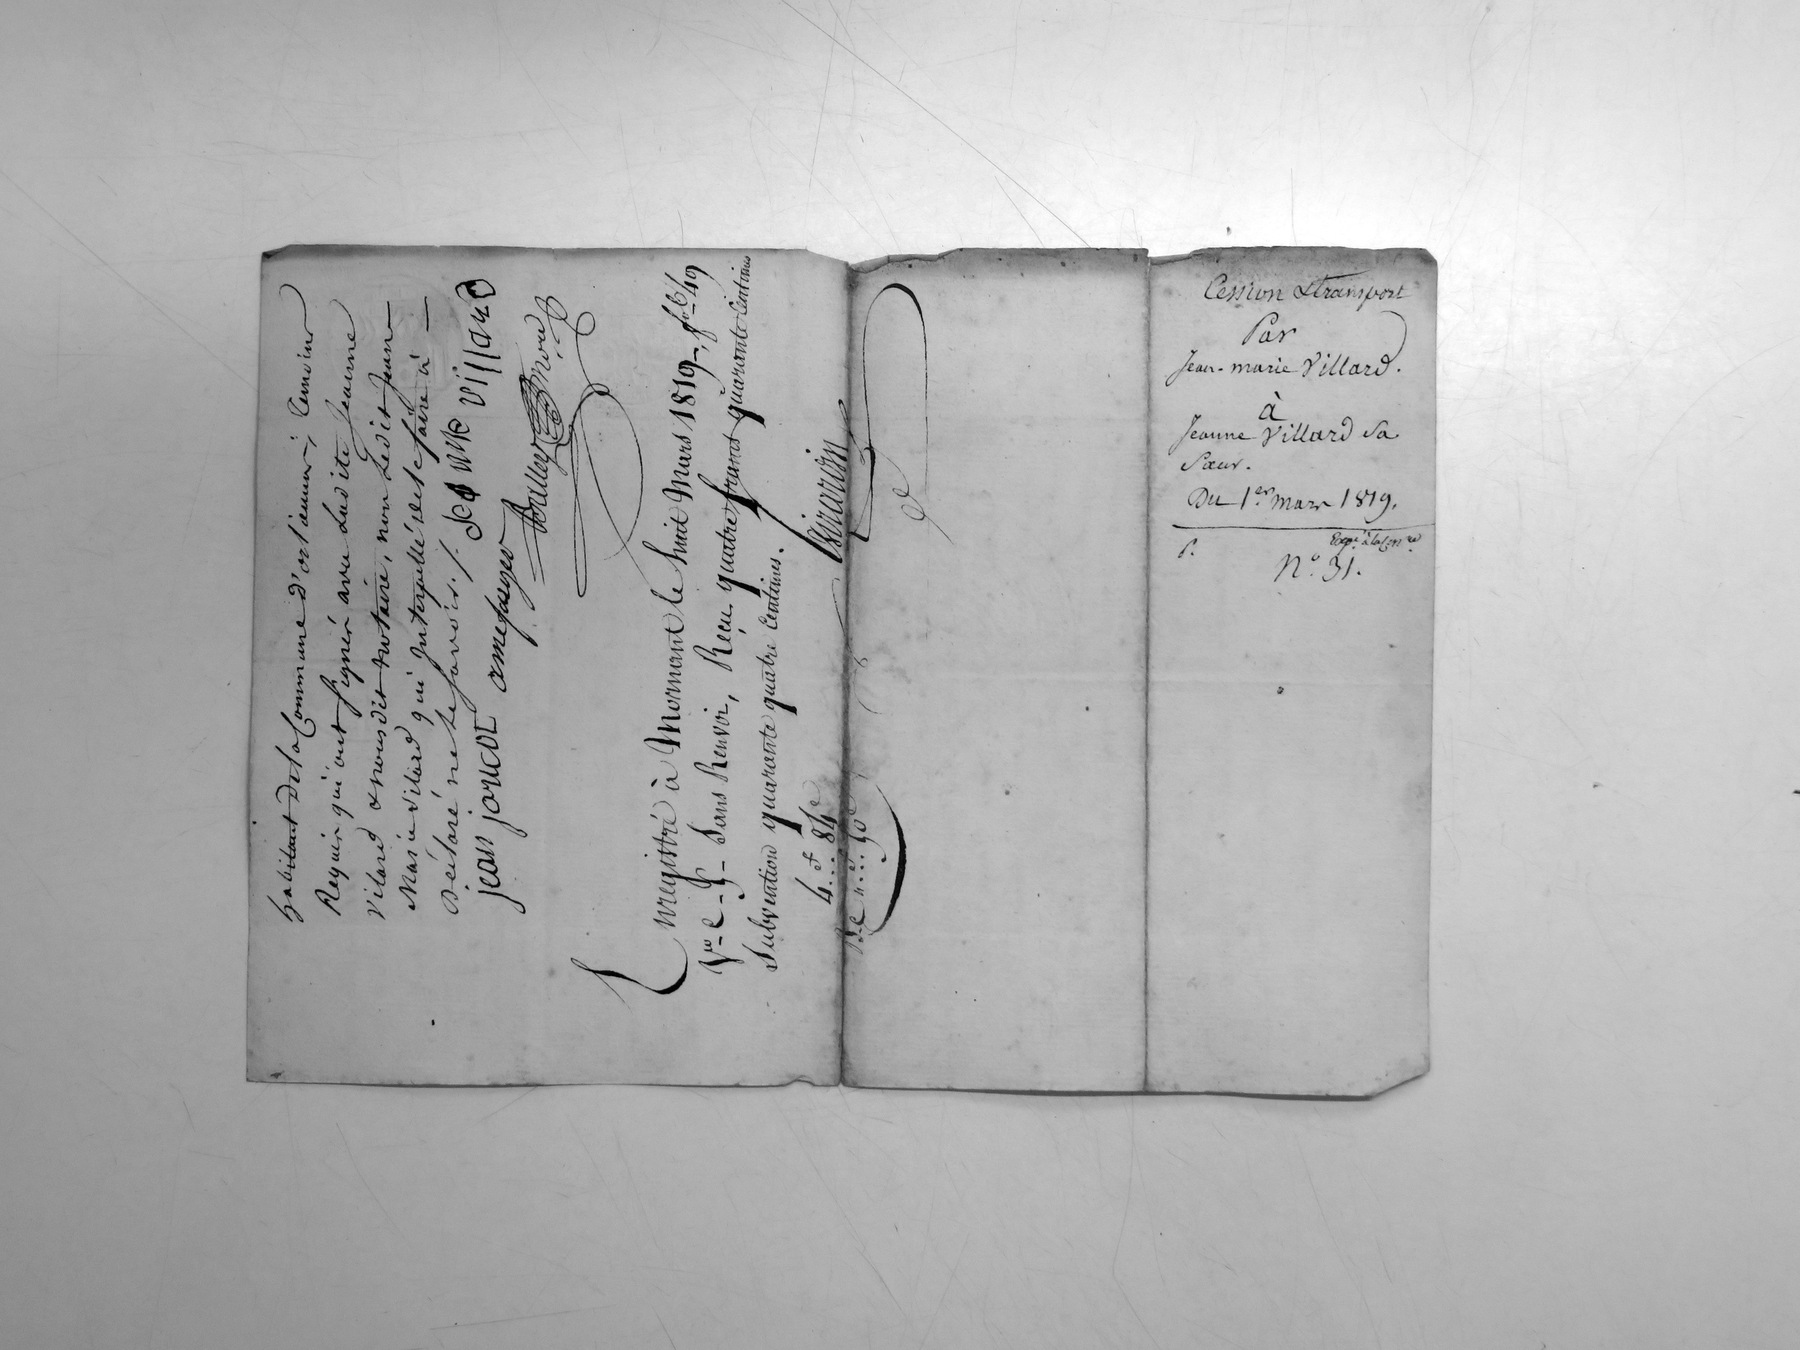 habitant de la Commune d'ortieumi; temoins
Requis qui ont signés avec Ladite Jeanne
Vilard & nousdit notaire, non Ledit Jean
Marie Vilard qui Interpellé de le faire à
Déclaré ne le savoir ./.
jean jorcol jeanne villard
Enregistré à Mornant le huit Mars 1819, fo 49
Vo C. 5. Sans Renvoi, Reçu quatre francs quarante Centimes
Subvention quarante quatre Centimes.
4f. 84c
Cession & transport
Par
Jean-marie Villard.
à
Jeanne Villard Sa
Sœur.
Du 1er mars 1819.
No. 31.